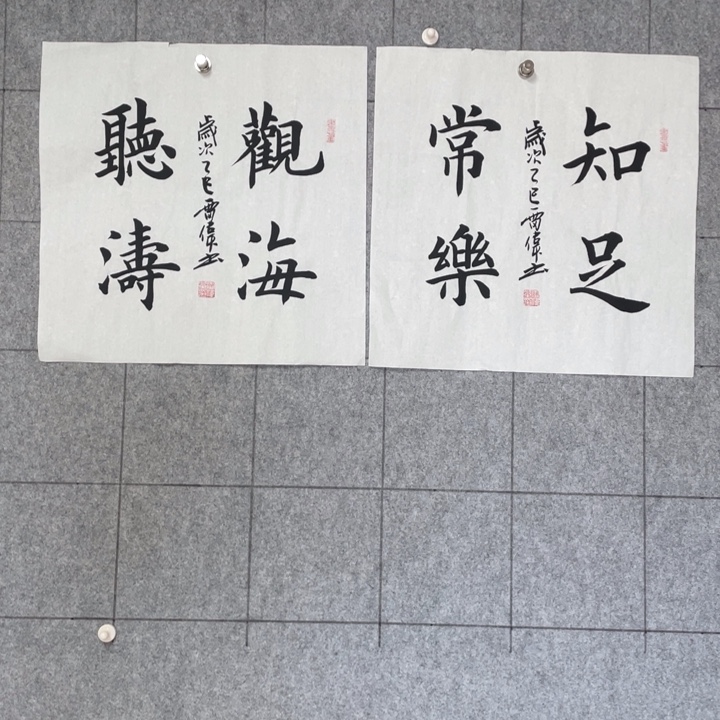 觀海
聽濤
歲次乙巳雷偉书
知足
常樂
歲次乙巳雷偉书